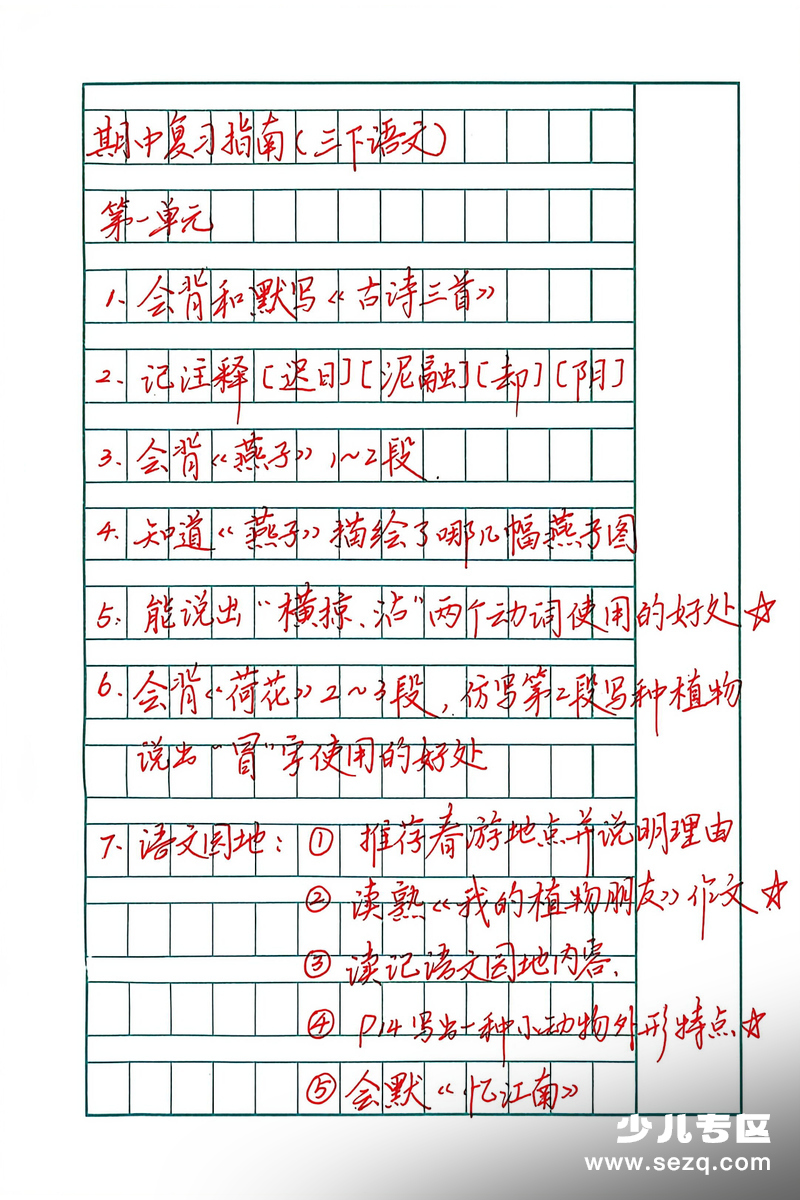 期中复习指南(三下语文)
第一单元
1、会背和默写《古诗三首》
2、记注释[迟日][泥融][却][阴]
3、会背《燕子》1~2段.
4、知道《燕子》描绘了哪几幅燕子图
5、能说出“横掠、沾”两个动词使用的好处☆
6、会背《荷花》2~3段,仿写第2段写种植物
说出“冒”字使用的好处
7、语文园地:① 推荐春游地点并说明理由
② 读熟《我的植物朋友》作文☆
③ 读记语文园地内容.
④ P14写出一种小动物外形特点☆
⑤ 会默《忆江南》
少儿专区
www.sezq.com